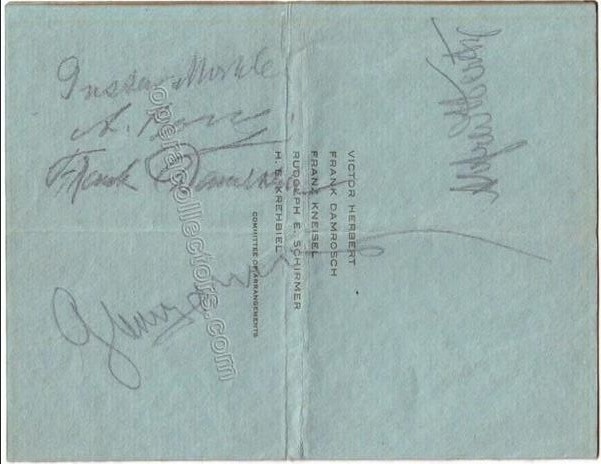 Gustav Mahler
Frank Damrosch
VICTOR HERBERT
FRANK DAMROSCH
FRANK KNEISEL
RUDOLPH E. SCHIRMER
H. E. KREHBIEL
COMMITTEE OF ARRANGEMENTS
Alfred Hertz
operacollectors.com